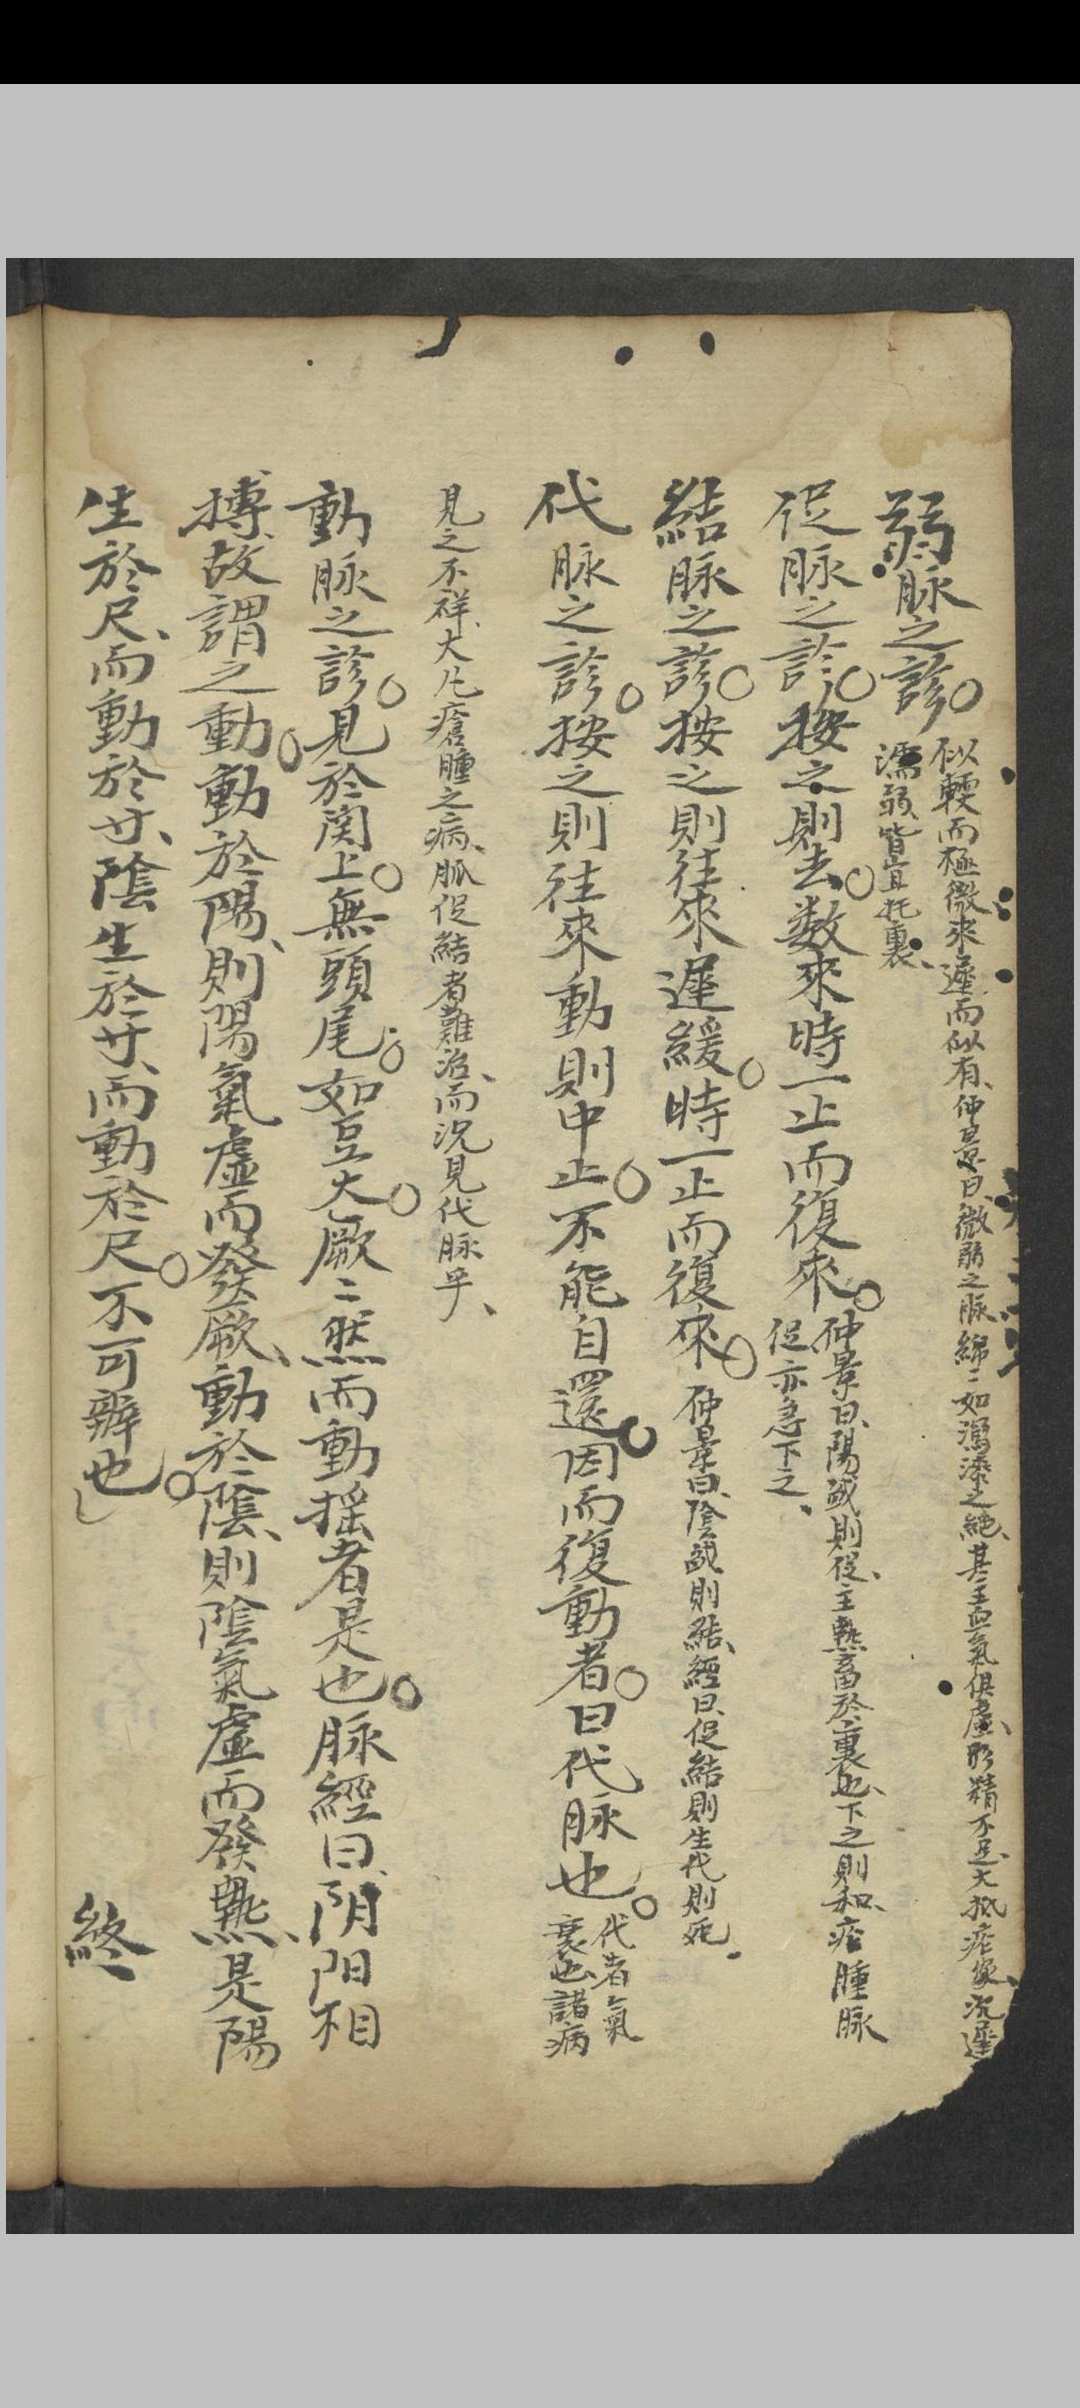 弱脉之診。似輭而極微來遲而似有、仲景曰、微弱之脉、綿〻如瀉漆之絶、其主血氣俱虛、形精不足、大抵瘡家沉遲
濡弱皆宜托裏、
促脉之診。按之則去。数來時一止而復來。仲景曰、陽盛則促、主熱畜於裏也、下之則和、瘡腫脉
促亦急下之、
結脉之診。按之則往來遲緩。時一止而復來。仲景曰、陰盛則結、經曰、促結則生代則死、
代脉之診。按之則往來動則中止。不能自還。因而復動者。曰代脉也。代者氣
衰也諸病
見之不祥、大凡瘡腫之病、脈促結者難治、而況見代脉乎、
動脉之診。見於関上。無頭尾。如豆大。厥〻然而動揺者是也。脉經曰、阴阳相
搏、故謂之動。動於陽、則陽氣虛而發厥、動於陰、則陰氣虛而發熱、是陽
生於尺、而動於寸、陰生於寸、而動於尺。不可辨也。
終